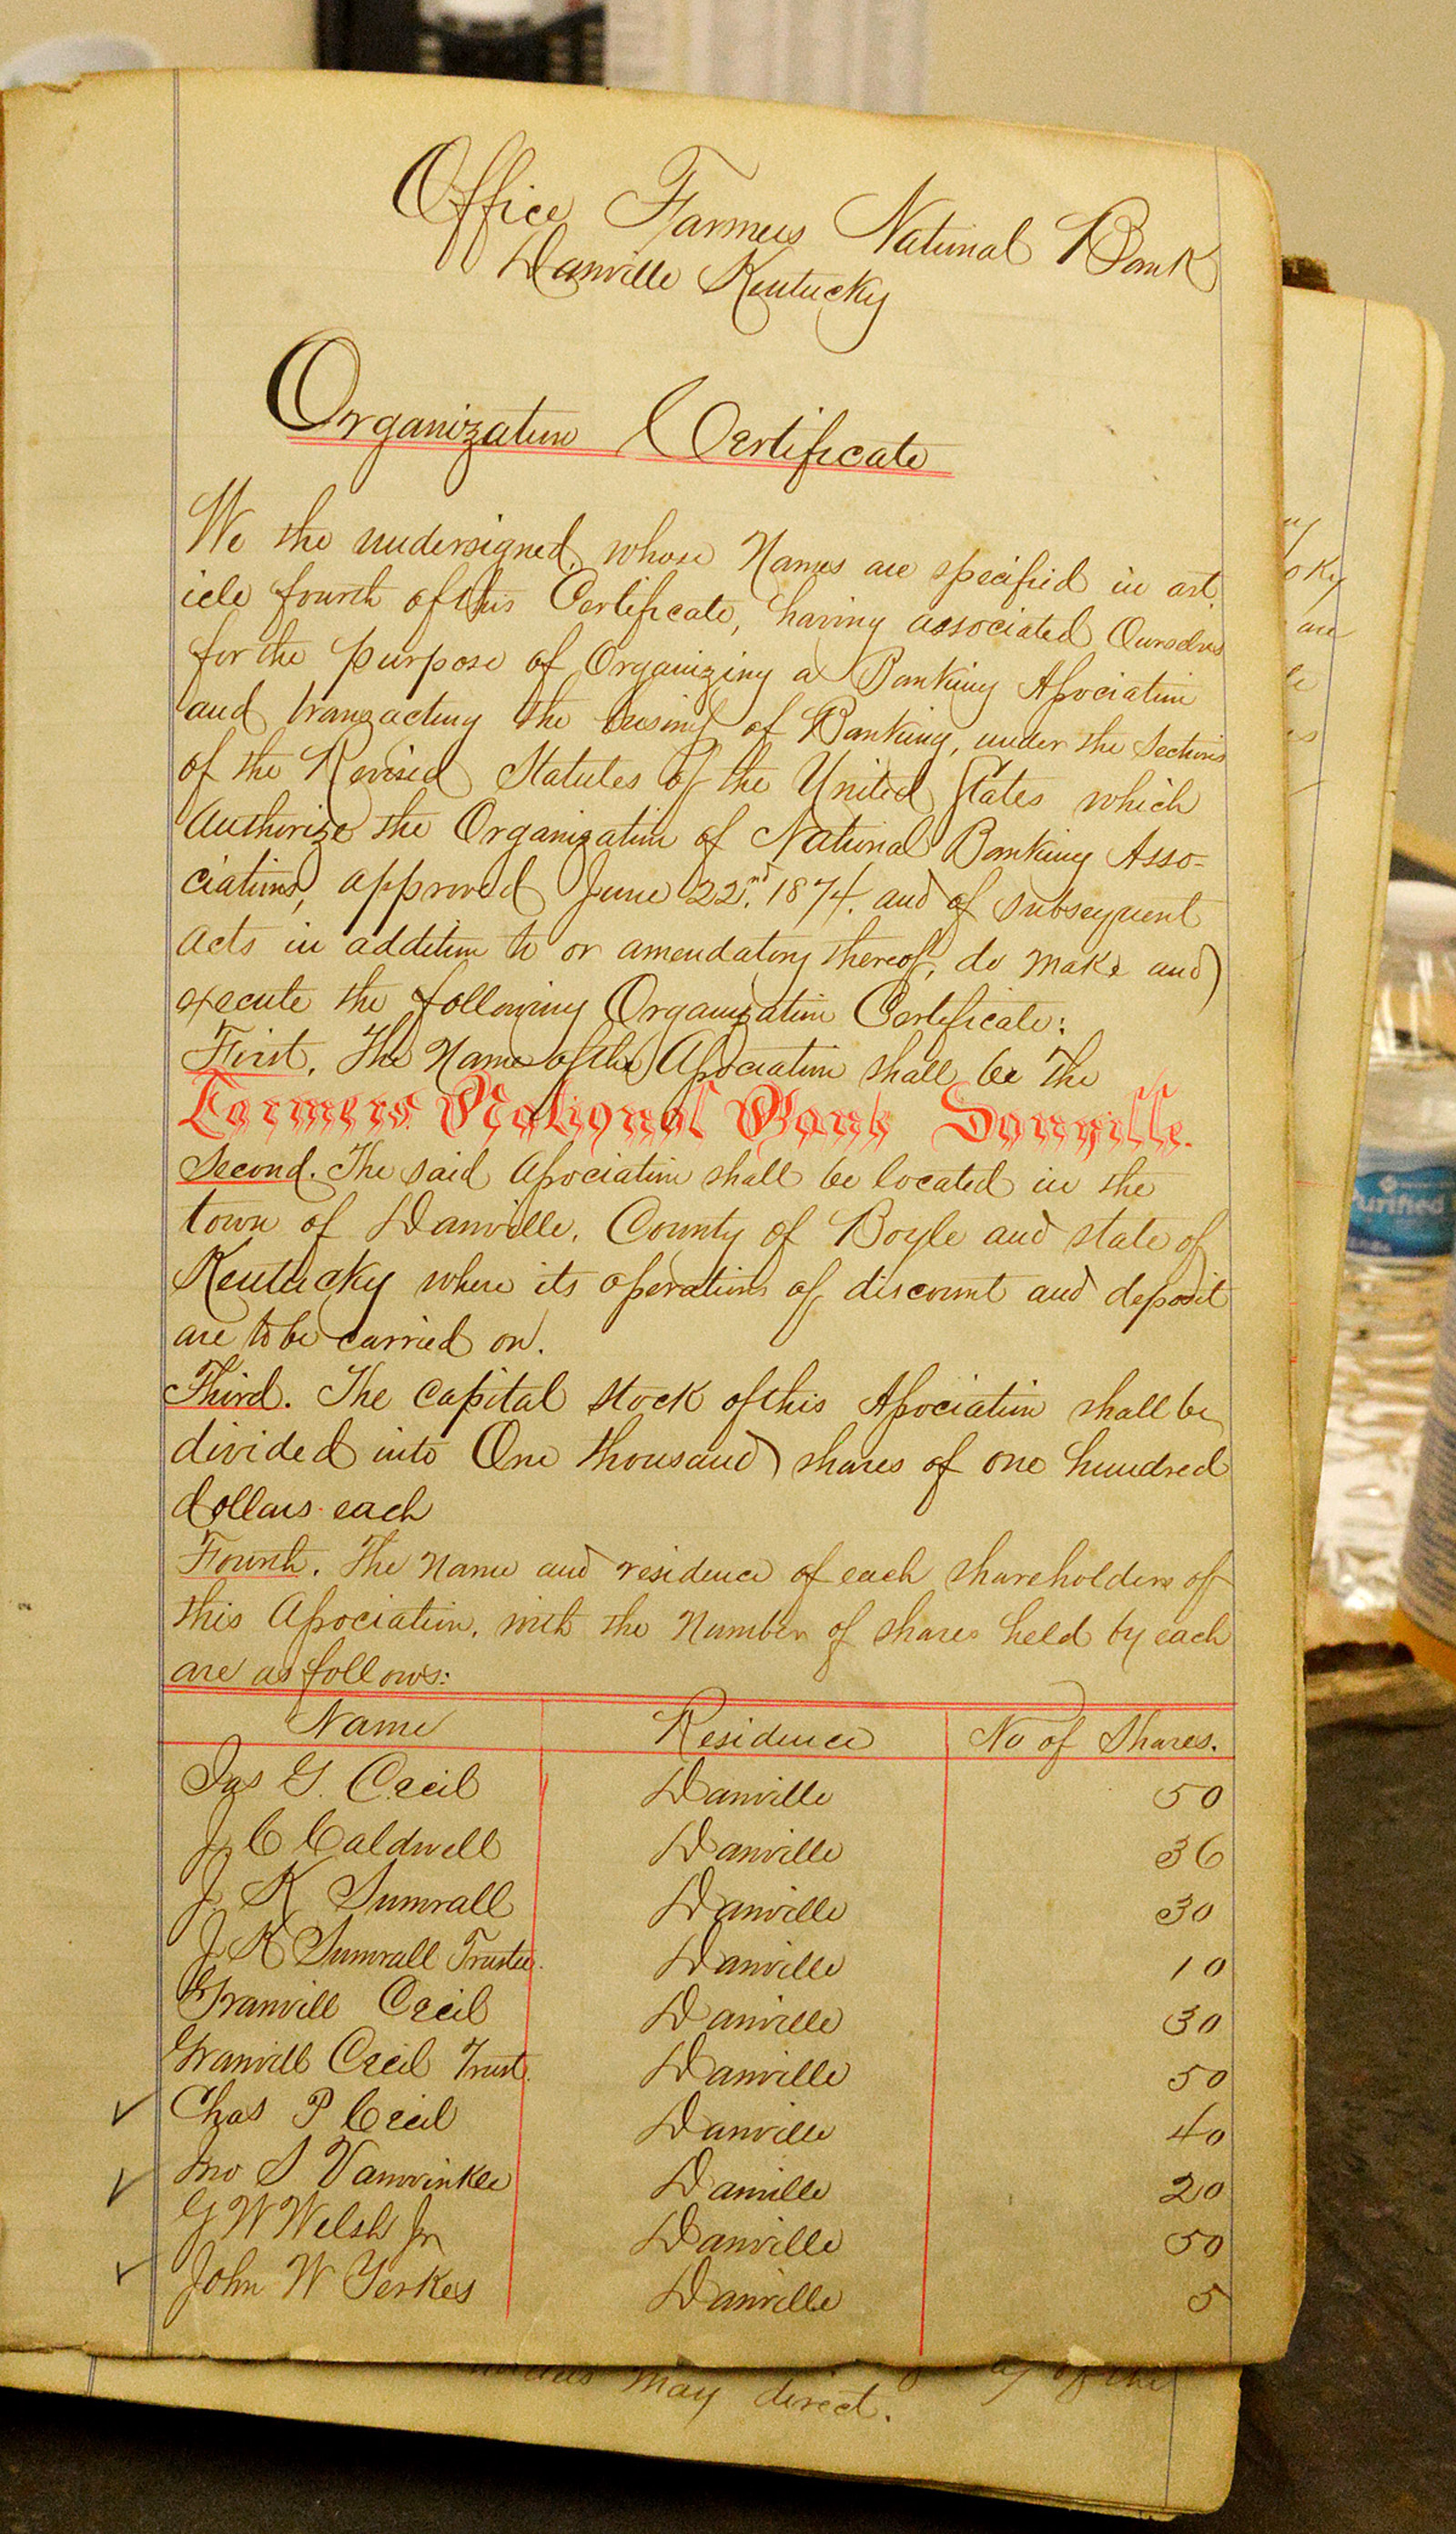 Office Farmers National Bank
Danville Kentucky
Organization Certificate
We the undersigned, whose Names are specified in art
icle fourth of this Certificate, having associated Ourselves
for the purpose of Organizing a Banking Association
and transacting the business of Banking, under the Sections
of the Revised Statutes of the United States which
Authorize the Organization of National Banking Asso-
ciations, approved June 22nd. 1874. and of subsequent
acts in addition to or amendatory thereof, do make and
execute the following Organization Certificate:
First. The Name of the Association shall be The
Farmers National Bank Danville.
Second. The said Association shall be located in the
town of Danville, County of Boyle and state of
Kentucky where its operations of discount and deposit
are to be carried on.
Third. The Capital Stock of this Association shall be
divided into One thousand shares of one hundred
dollars each
Fourth. The Name and residence of each shareholders of
this Association, with the Number of shares held by each
are as follows:
Name Residence No of Shares.
Jas G. Cecil Danville 50
J C Caldwell Danville 36
J. K Sumrall Danville 30
J K Sumrall Trustee. Danville 10
Granvill Cecil Danville 30
Granvill Cecil Trust. Danville 50
Chas P Cecil Danville 40
Jno S Vanwinkle Danville 20
G W Welsh Jr Danville 50
John W Yerkes Danville 5
may direct.
of the
are
Purified